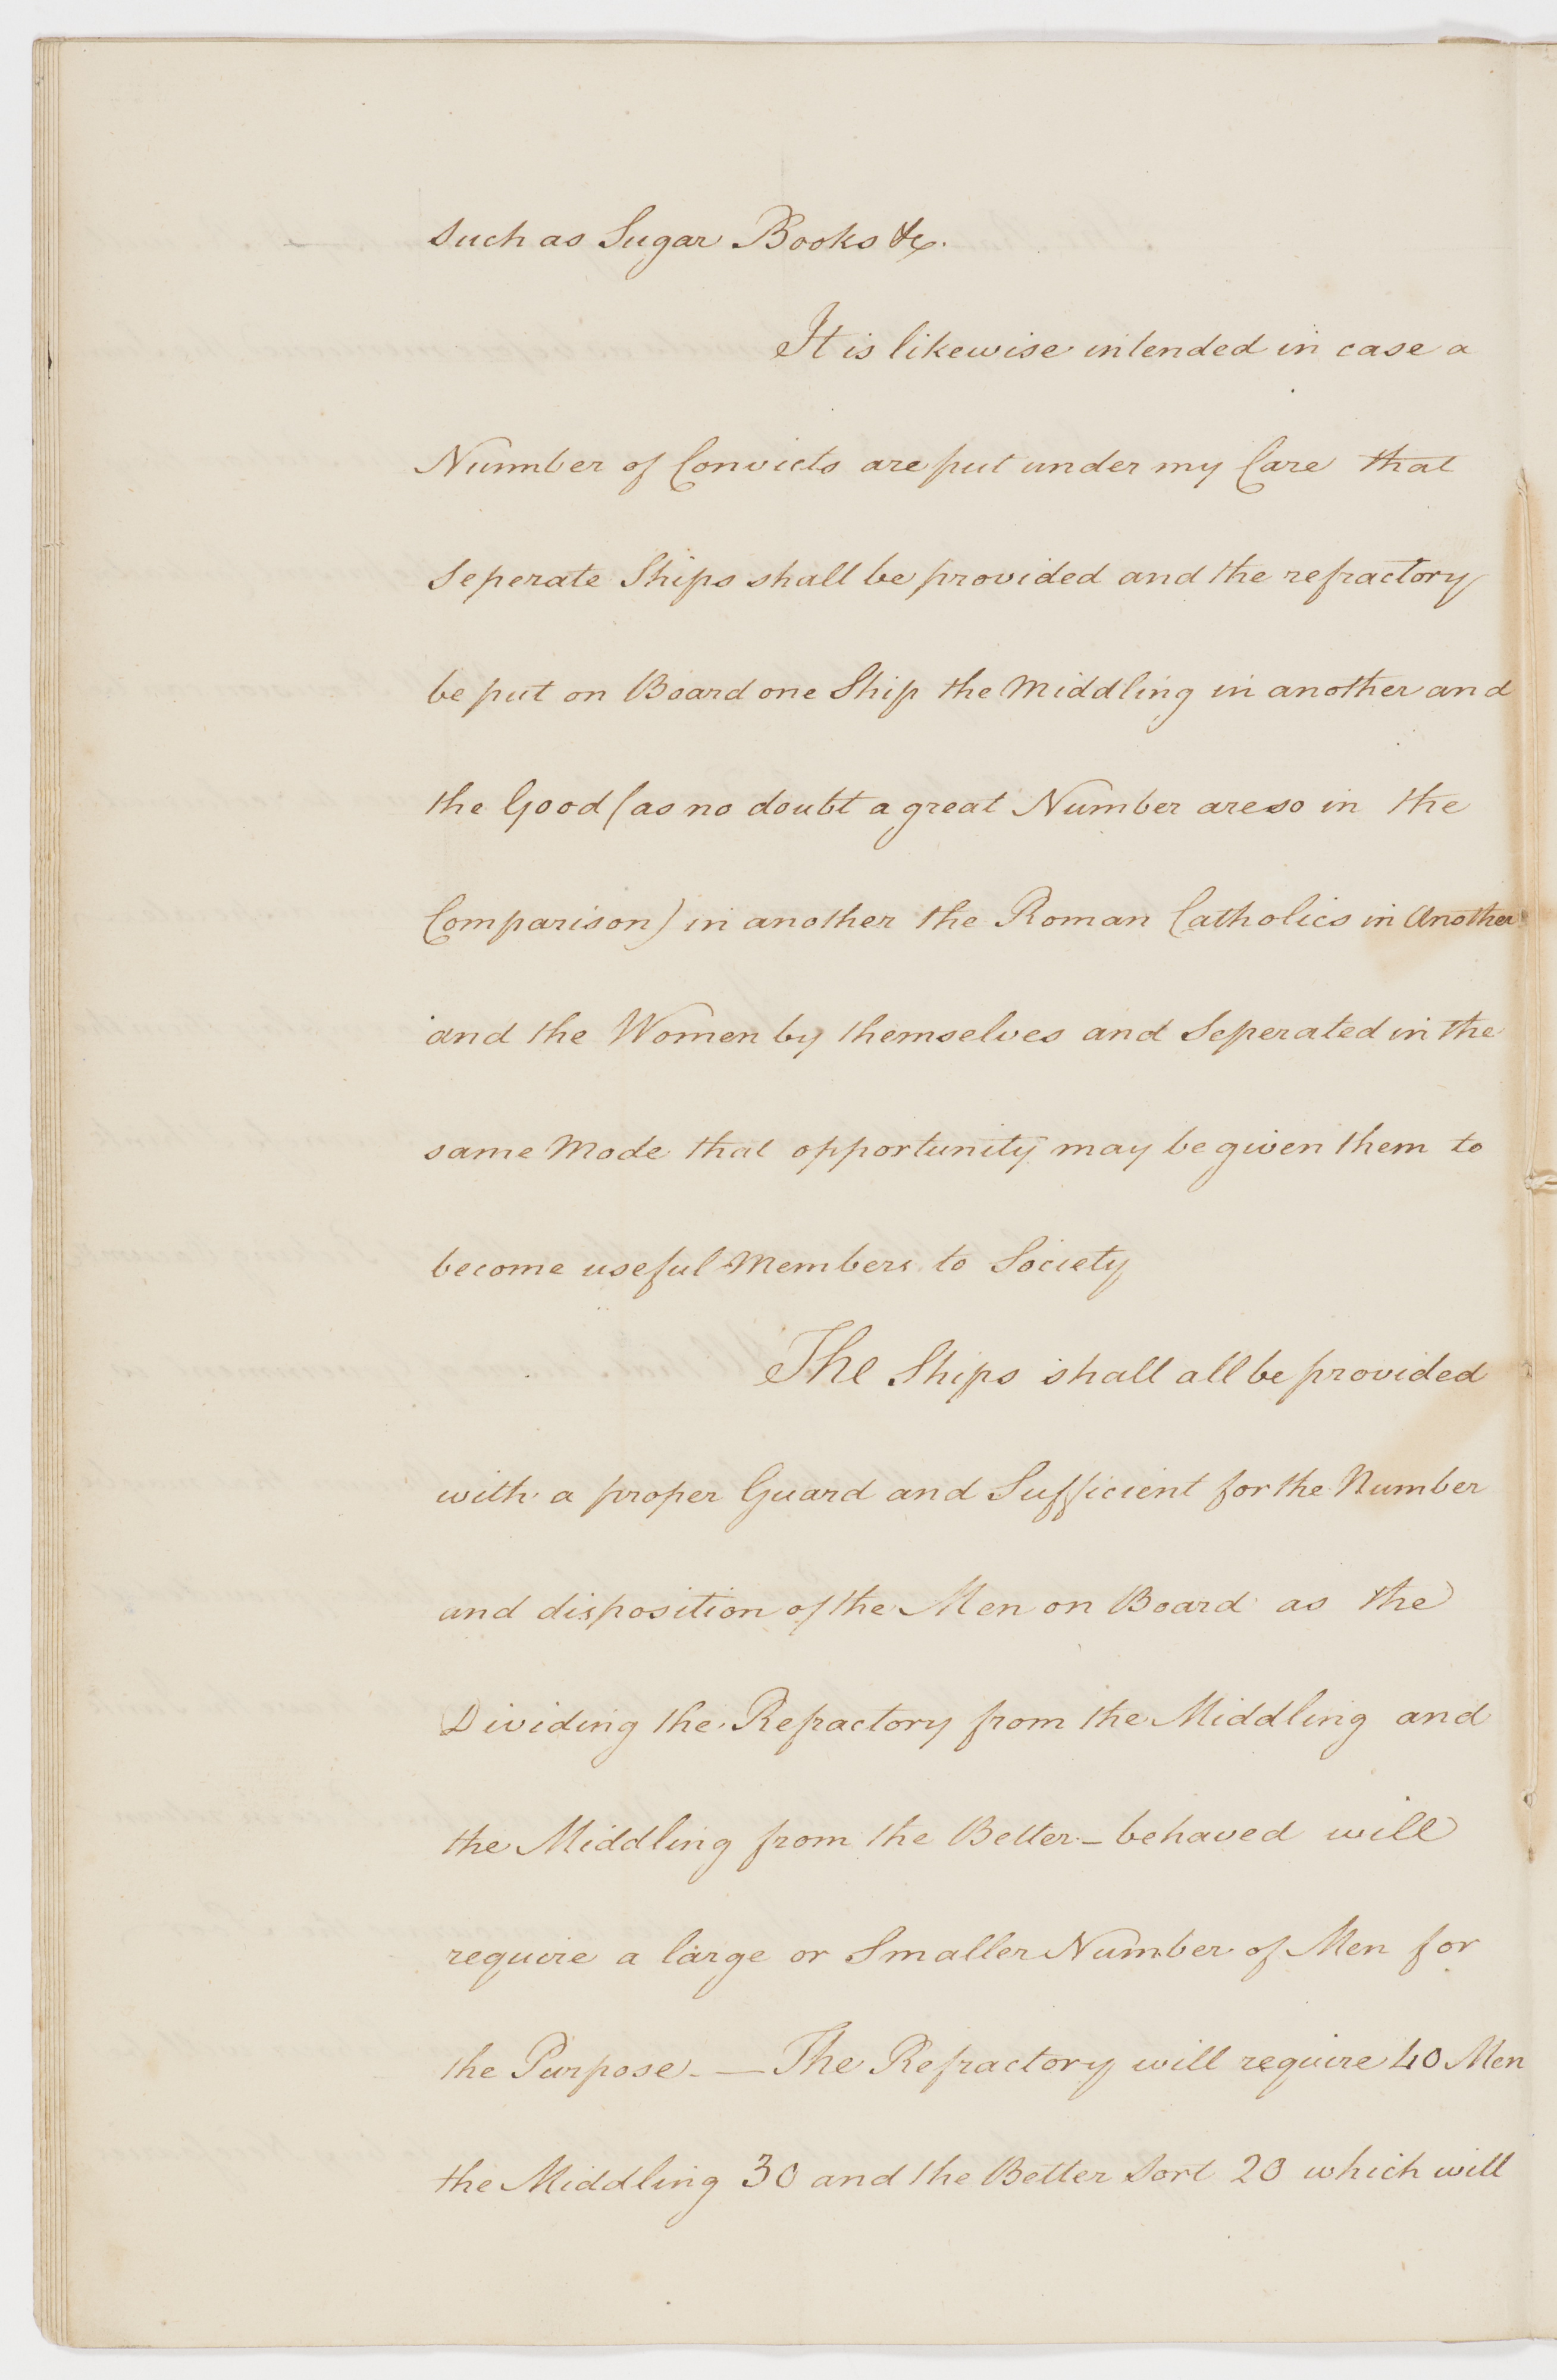 such as Sugar Books &c.
It is likewise intended in case a
Number of Convicts are put under my Care that
seperate Ships shall be provided and the refractory
be put on Board one Ship the Middling in another and
the Good (as no doubt a great Number are so in the
Comparison) in another the Roman Catholics in Another
and the Women by themselves and Seperated in the
same Mode that opportunity may be given them to
become useful Members to Society
The Ships shall all be provided
with a proper Guard and Sufficient for the Number
and disposition of the Men on Board as the
Dividing the Refractory from the Middling and
the Middling from the Better-behaved will
require a large or Smaller Number of Men for
the Purpose. — The Refractory will require 40 Men
the Middling 30 and the Better Sort 20 which will